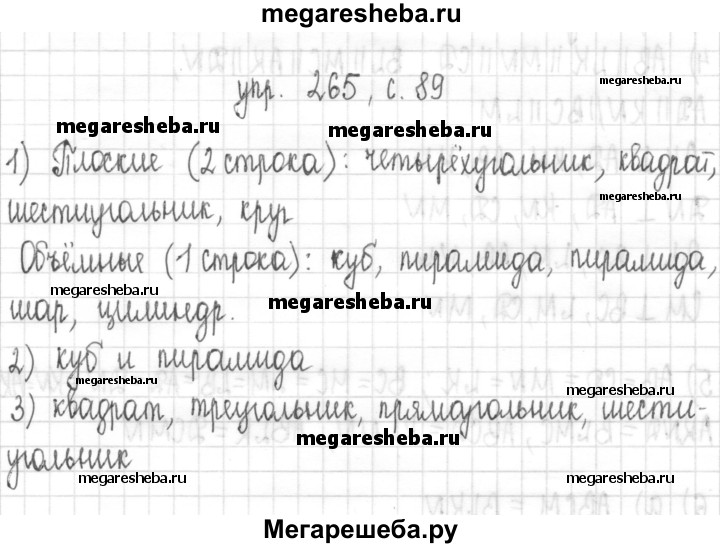 megaresheba.ru
упр. 265, с. 89
megaresheba.ru
megaresheba.ru megaresheba.ru
1) Плоские (2 строка): четырёхугольник, квадрат,
шестиугольник, круг
megaresheba.ru megaresheba.ru
Объёмные (1 строка): куб, пирамида, пирамида,
megaresheba.ru megaresheba.ru
шар, цилиндр.
2) куб и пирамида
megaresheba.ru megaresheba.ru
3) квадрат, треугольник, прямоугольник, шести-
megaresheba.ru
угольник
megaresheba.ru megaresheba.ru
Мегарешеба.ру